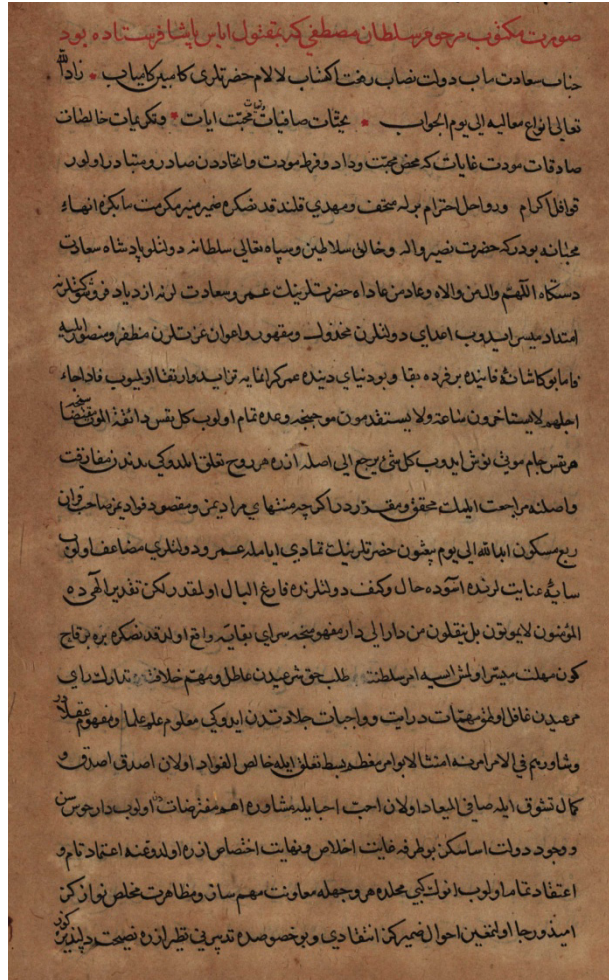 صورت مكتوب مرحوم سلطان مصطفى كه بمقتول اياس پاشا فرستاده بود
جناب سعادت مآب دولت نصاب رفعت اكتساب لالام حضرتلرى كامبين كامياب زاد الله
تعالى انواع معاليه الى يوم الجواب تحيّات صافيات محبّت ايات وتكريمات خالصات
صادقات مودت غايات كه محض محبّت و داد و فرط مودت و اتحاددن صادر و متبادر اولور
قوافل اكرام و رواحل احترام برله متحف و مهدي قلندقدنصكره ضمير منير مكرمت انهاء
محبّانه بودر كه حضرت نصير واله وخالق سلاطين وسپاه تعالى سلطانه دولتلو پادشاه سعادت
دستكاه اللهم وال من والاه وعاد من عاداه حضرتلرينك عمر وسعادتلرنه ازدياد
امتداد ميسر ايدوب اعداى دولتلرن مخذول ومقهور واعوان عزتلرن مظفر ومنصور ايليه
فاما بو كاشانهٔ فانيده بر فرده بقا و بو دنياى دينده عمر كرانمايه تزايد وارتقا اولميوب فاذا جاء
اجلهم لا يستاخرون ساعة ولا يستقدمون موجبنجه وعده تمام اولوب كل نفس ذائقة الموت
هر نفس جام موتى نوش ايدوب كل شئ يرجع الى اصله اوزره هر روح تعلق ايلدوكى بدندن مفارقت
و اصلنه مراجعت ايلمك محقق ومقرردر اكرچه منتهاي مراديمز ومقصود فواديمز صاحب قران
ربع مسكون ابدالله الى يوم يبعثون حضرتلرينك تمادى اياميله عمر و دولتلرى مضاعف اولوب
سايهٔ عنايتلرنده آسوده حال وكنف دولتلرنده فارغ البال اولمقدر لكن تقدير الهى ده
المؤمنون لا يموتون بل ينقلون من دار الى دار مفهومنجه سراى بقايه واقع اولدقدنصكره بزه برقاج
كون مهلت ميسر اولمش ايسه امر سلطنت طلب حق شرعيدن عاطل ومهم خلافت
مرعيدن غافل اولمق مهمّات درايت و واجبات جلادتدن ايدوكى معلوم علما ومفهوم عقلادر
وشاورهم فى الامر امرنه امتثالا بو امر معظم بسط تعلق ايله خالص الفواد اولان اصدق اصدقا و
كمال تشوق ايله صافى الميعاد اولان احبّ احبا يله مشاوره اهم مفترضات اولوب
و وجود دولت اساسكز بو طرفه غايت اخلاص ونهايت اختصاص اوزره اولدوغنه اعتماد تام و
اعتقاد تمام اولوب اولكى محلده هر وجهله معاونت مهم ساز ومظاهرت مخلص نوازكز
اميذ و رجا اولنمغين احوال ضميركز و بو خصوصده تدبير بى نظير اوزره نصيحت دلپذيركوز